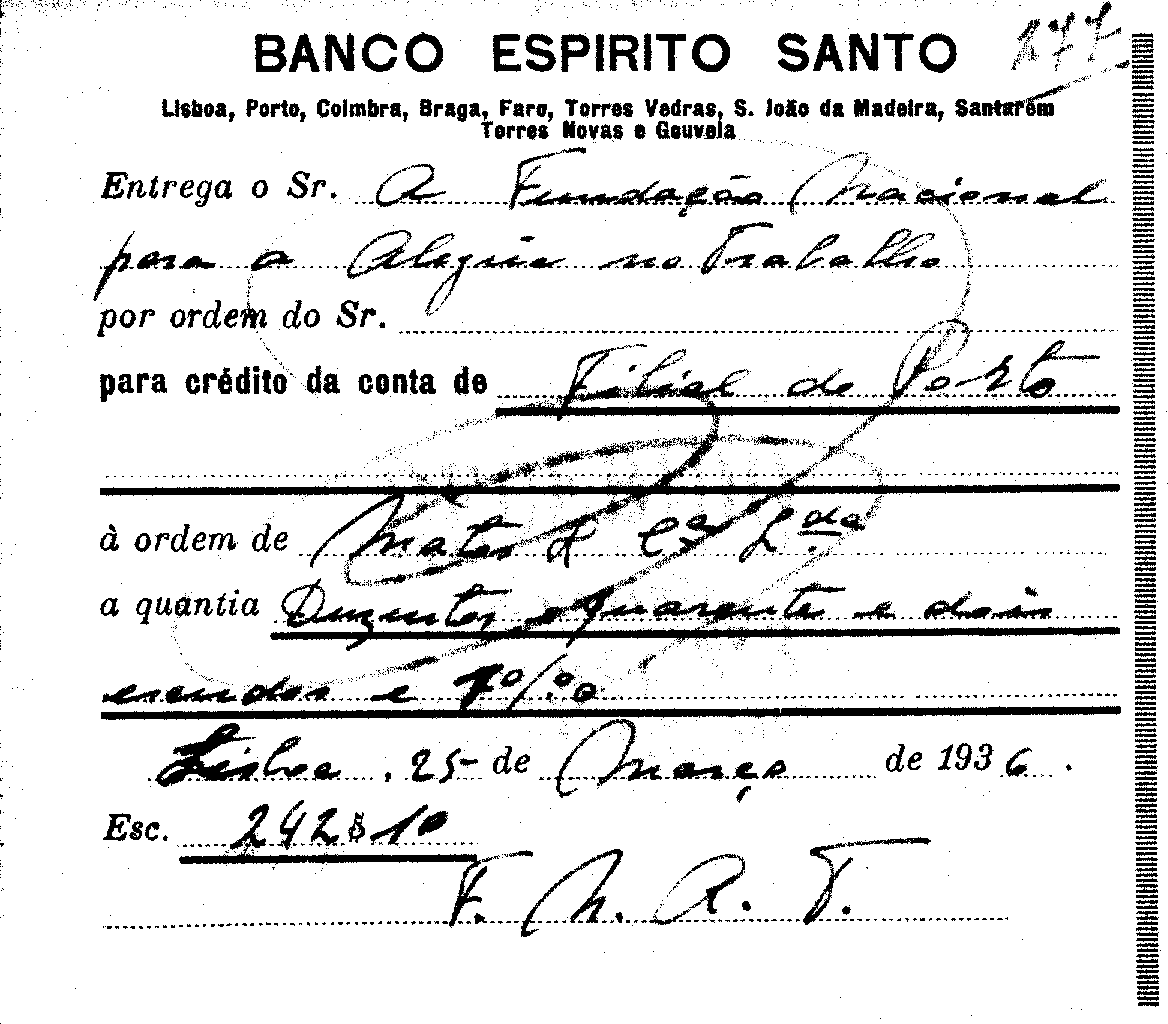 277
BANCO ESPIRITO SANTO
Lisboa, Porto, Coimbra, Braga, Faro, Torres Vedras, S. João da Madeira, Santarém
Torres Novas e Gouveia
Entrega o Sr. A Fundação Nacional
para a Alegria no Trabalho
por ordem do Sr.
para crédito da conta de Filial do Porto
à ordem de Matos & Cª Lda
a quantia Duzentos e quarenta e dois
escudos e 10/00
Lisboa, 25 de Março de 1936.
Esc. 242$10
F. N. A. T.